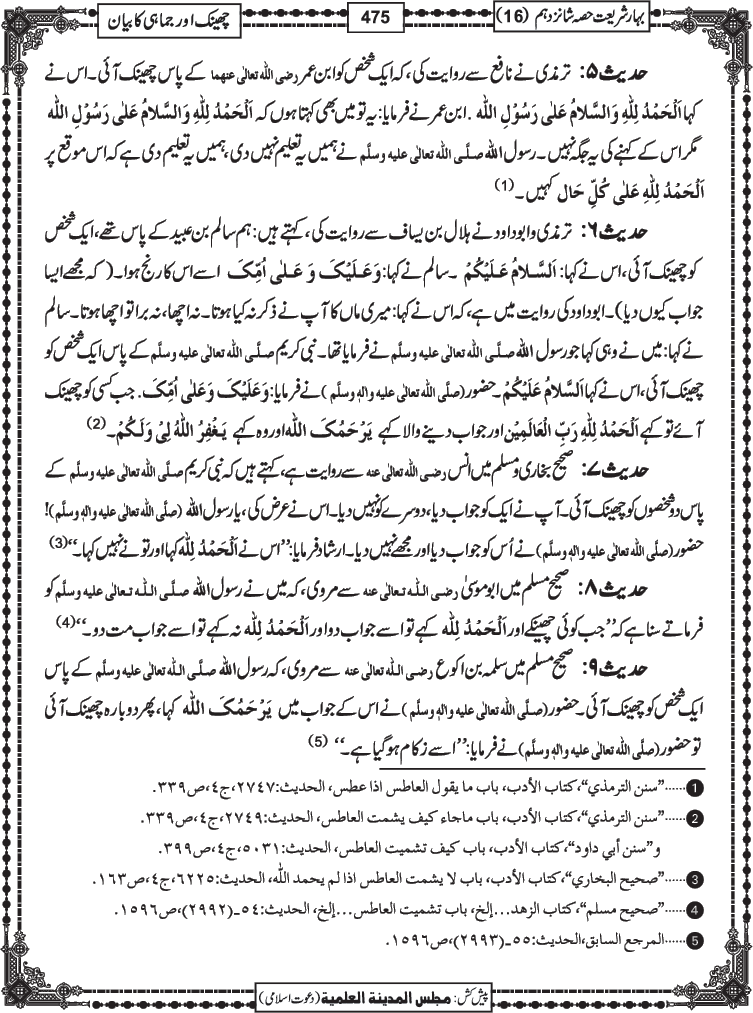 بہارِشریعت حصہ شانزدہم (16)
475
چھینک اور جماہی کا بیان
حدیث ۵: ترمذی نے نافع سے روایت کی، کہ ایک شخص کو ابن عمر رضی اللہ تعالٰی عنھما کے پاس چھینک آئی۔ اس نے
کہا اَلْحَمْدُ لِلّٰہِ وَالسَّلامُ عَلٰی رَسُوْلِ اللّٰہ . ابن عمر نے فرمایا: یہ تو میں بھی کہتا ہوں کہ اَلْحَمْدُ لِلّٰہِ وَالسَّلامُ عَلٰی رَسُوْلِ اللّٰہ
مگر اس کے کہنے کی یہ جگہ نہیں۔ رسول اللہ صلَّی اللہ تعالٰی علیہ وسلَّم نے ہمیں یہ تعلیم نہیں دی، ہمیں یہ تعلیم دی ہے کہ اس موقع پر
اَلْحَمْدُ لِلّٰہِ عَلٰی کُلِّ حَال کہیں۔(1)
حدیث ۶: ترمذی و ابو داود نے ہلال بن یساف سے روایت کی، کہتے ہیں: ہم سالم بن عبید کے پاس تھے، ایک شخص
کو چھینک آئی، اس نے کہا: اَلسَّلامُ عَلَیْکُمْ ۔ سالم نے کہا: وَعَلَیْکَ وَ عَلٰی اُمِّکَ اسے اس کا رنج ہوا۔ ( کہ مجھے ایسا
جواب کیوں دیا)۔ ابو داود کی روایت میں ہے، کہ اس نے کہا: میری ماں کا آپ نے ذکر نہ کیا ہوتا۔ نہ اچھا، نہ برا تو اچھا ہوتا۔ سالم
نے کہا: میں نے وہی کہا جو رسول اللہ صلَّی اللہ تعالٰی علیہ وسلَّم نے فرمایا تھا۔ نبی کریم صلَّی اللہ تعالٰی علیہ وسلَّم کے پاس ایک شخص کو
چھینک آئی، اس نے کہا اَلسَّلامُ عَلَیْکُمْ۔ حضور (صلَّی اللہ تعالٰی علیہ واٰلہٖ وسلَّم ) نے فرمایا: وَعَلَیْکَ وَعَلٰی اُمِّکَ. جب کسی کو چھینک
آئے تو کہے اَلْحَمْدُ لِلّٰہِ رَبِّ الْعَالَمِیْن اور جواب دینے والا کہے یَرْحَمُکَ اللّٰہ اور وہ کہے یَغْفِرُ اللّٰہُ لِیْ وَلَکُمْ۔(2)
حدیث ۷: صحیح بخاری و مسلم میں انس رضی اللہ تعالٰی عنہ سے روایت ہے، کہتے ہیں کہ نبی کریم صلَّی اللہ تعالٰی علیہ وسلَّم کے
پاس دو شخصوں کو چھینک آئی۔ آپ نے ایک کو جواب دیا، دوسرے کو نہیں دیا۔ اس نے عرض کی، یا رسول اللہ (صلَّی اللہ تعالٰی علیہ واٰلہٖ وسلَّم)!
حضور (صلَّی اللہ تعالٰی علیہ واٰلہٖ وسلَّم) نے اُس کو جواب دیا اور مجھے نہیں دیا۔ ارشاد فرمایا: ’’اس نے اَلْحَمْدُ لِلّٰہ کہا اور تو نے نہیں کہا۔‘‘(3)
حدیث ۸: صحیح مسلم میں ابو موسیٰ رضی اللہ تعالٰی عنہ سے مروی، کہ میں نے رسول اللہ صلَّی اللہ تعالٰی علیہ وسلَّم کو
فرماتے سنا ہے کہ ’’جب کوئی چھینکے اور اَلْحَمْدُ لِلّٰہ کہے تو اسے جواب دو اور اَلْحَمْدُ لِلّٰہ نہ کہے تو اسے جواب مت دو۔‘‘(4)
حدیث ۹: صحیح مسلم میں سلمہ بن اکوع رضی اللہ تعالٰی عنہ سے مروی، کہ رسول اللہ صلَّی اللہ تعالٰی علیہ وسلَّم کے پاس
ایک شخص کو چھینک آئی۔ حضور (صلَّی اللہ تعالٰی علیہ واٰلہٖ وسلَّم ) نے اس کے جواب میں یَرْحَمُکَ اللّٰہ کہا، پھر دوبارہ چھینک آئی
تو حضور (صلَّی اللہ تعالٰی علیہ واٰلہٖ وسلَّم) نے فرمایا: ’’اسے زکام ہو گیا ہے۔‘‘(5)
1......’’سنن الترمذي‘‘، كتاب الأدب، باب ما يقول العاطس اذا عطس، الحديث:٢٧٤٧،ج٤،ص٣٣٩.
2......’’سنن الترمذي‘‘، كتاب الأدب، باب ماجاء كيف يشمت العاطس، الحديث:٢٧٤٩،ج٤،ص٣٣٩.
و’’سنن أبي داود‘‘، كتاب الأدب، باب كيف تشميت العاطس، الحديث:٥٠٣١،ج٤،ص٣٩٩.
3......’’صحيح البخاري‘‘، كتاب الأدب، باب لا يشمت العاطس اذا لم يحمد اللّٰه، الحديث:٦٢٢٥،ج٤،ص١٦٣.
4......’’صحيح مسلم‘‘، كتاب الزهد...إلخ، باب تشميت العاطس...إلخ، الحديث:٥٤ـ(٢٩٩٢)،ص١٥٩٦.
5......المرجع السابق،الحديث:٥٥ـ(٢٩٩٣)،ص١٥٩٦.
پیش کش: مجلس المدينة العلمية (دعوت اسلامی)